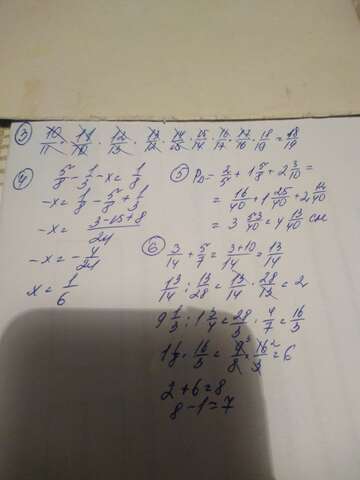 ③ 10/11 · 11/12 · 12/13 · 13/14 · 14/15 · 15/14 · 16/17 · 17/18 · 18/19 = 18/19
④ 5/8 - 1/3 - x = 1/8
-x = 1/8 - 5/8 + 1/3
-x = (3-15+8)/24
-x = -4/24
x = 1/6
⑤ P△ = 2/5 + 1 5/8 + 2 3/10 =
= 16/40 + 1 25/40 + 2 12/40
= 3 53/40 = 4 13/40 см
⑥ 3/14 + 5/7 = (3+10)/14 = 13/14
13/14 : 13/28 = 13/14 · 28/13 = 2
9 1/3 : 1 3/4 = 28/3 · 4/7 = 16/3
1 1/8 · 16/3 = 9/8 · 16/3 = 6
2+6=8
8-1=7